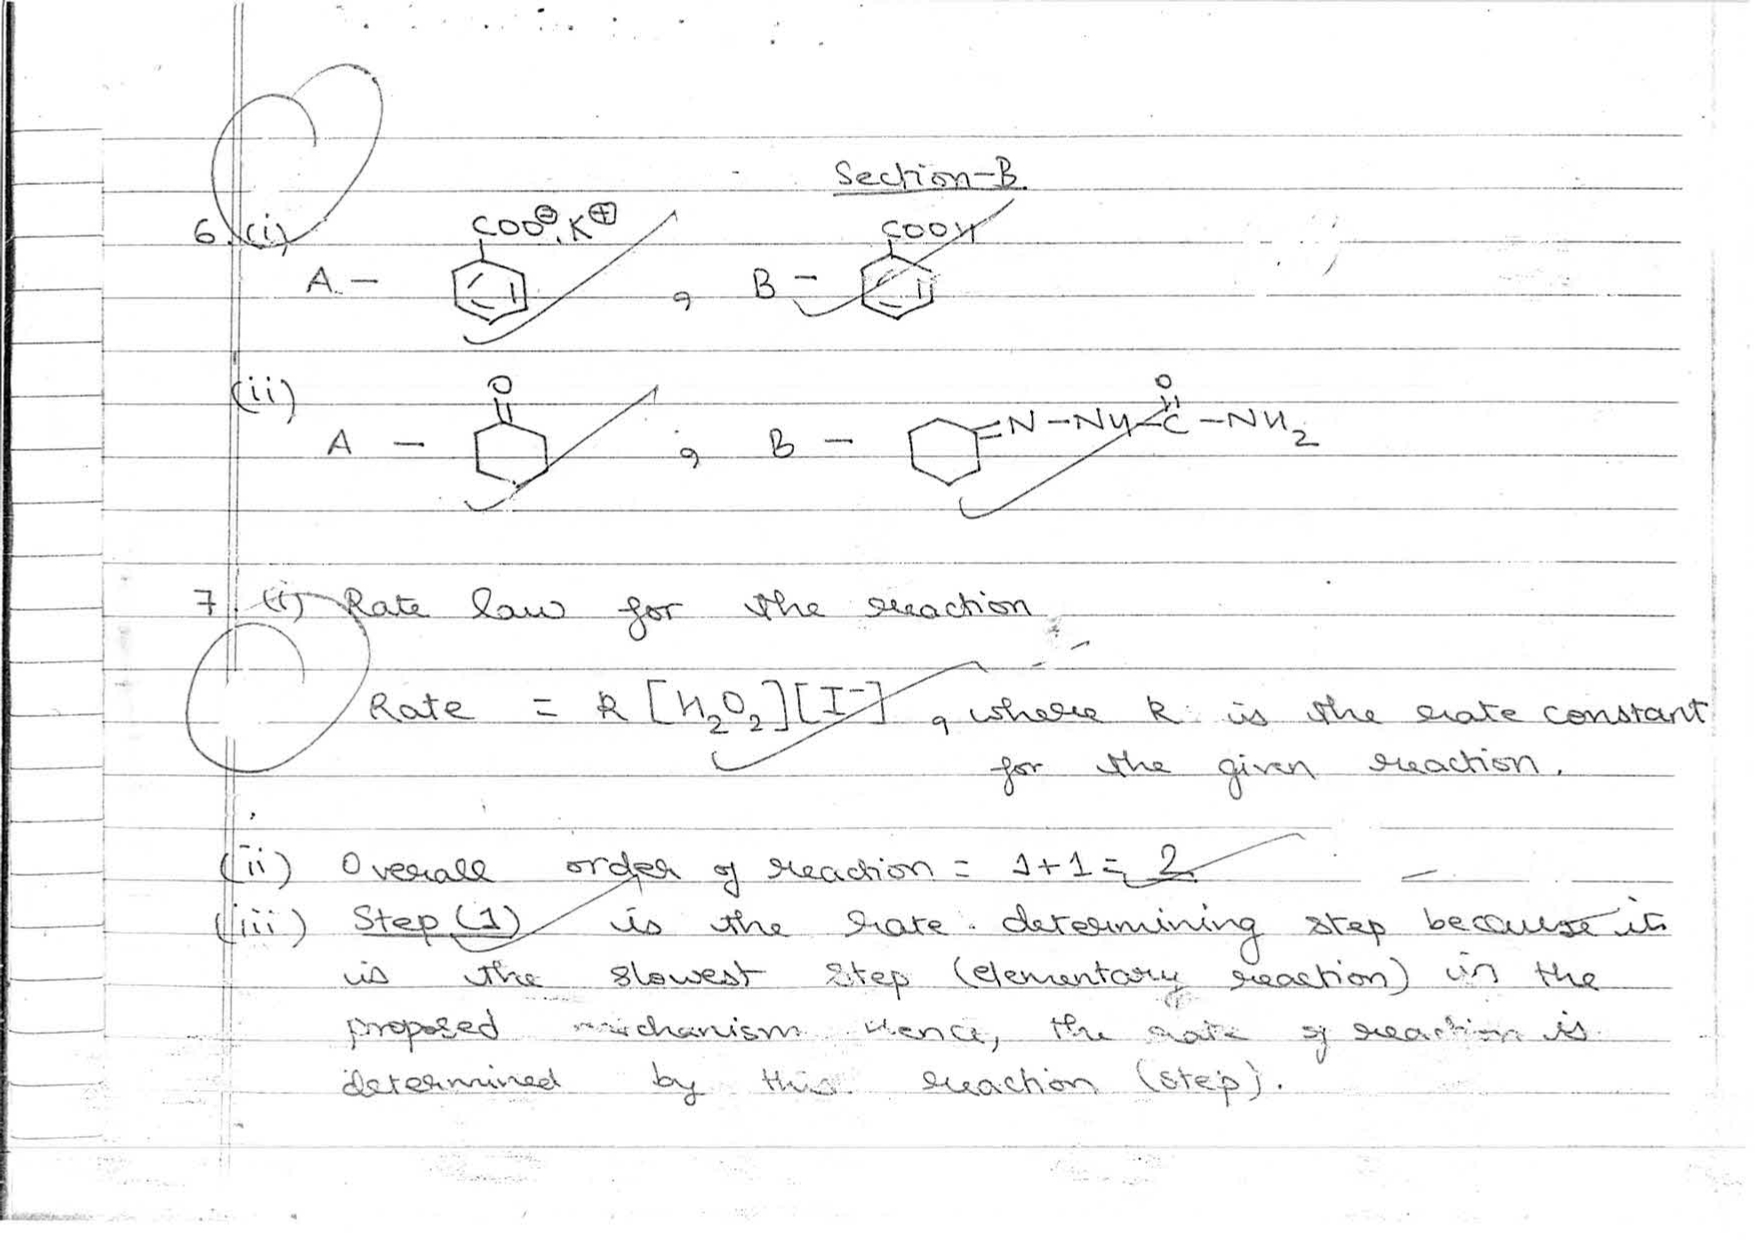 Section-B
6.(i)
COO⊖.K⊕ COOH
A - , B -
(ii)
O O
A - , B - =N-NH-C-NH₂
7. (i) Rate law for the reaction
Rate = k [H₂O₂][I⁻] , where k is the rate constant
for the given reaction.
(ii) Overall order of reaction = 1+1 = 2
(iii) Step (1) is the rate determining step because it
is the slowest step (elementary reaction) in the
proposed mechanism Hence, the rate of reaction is
determined by this reaction (step).